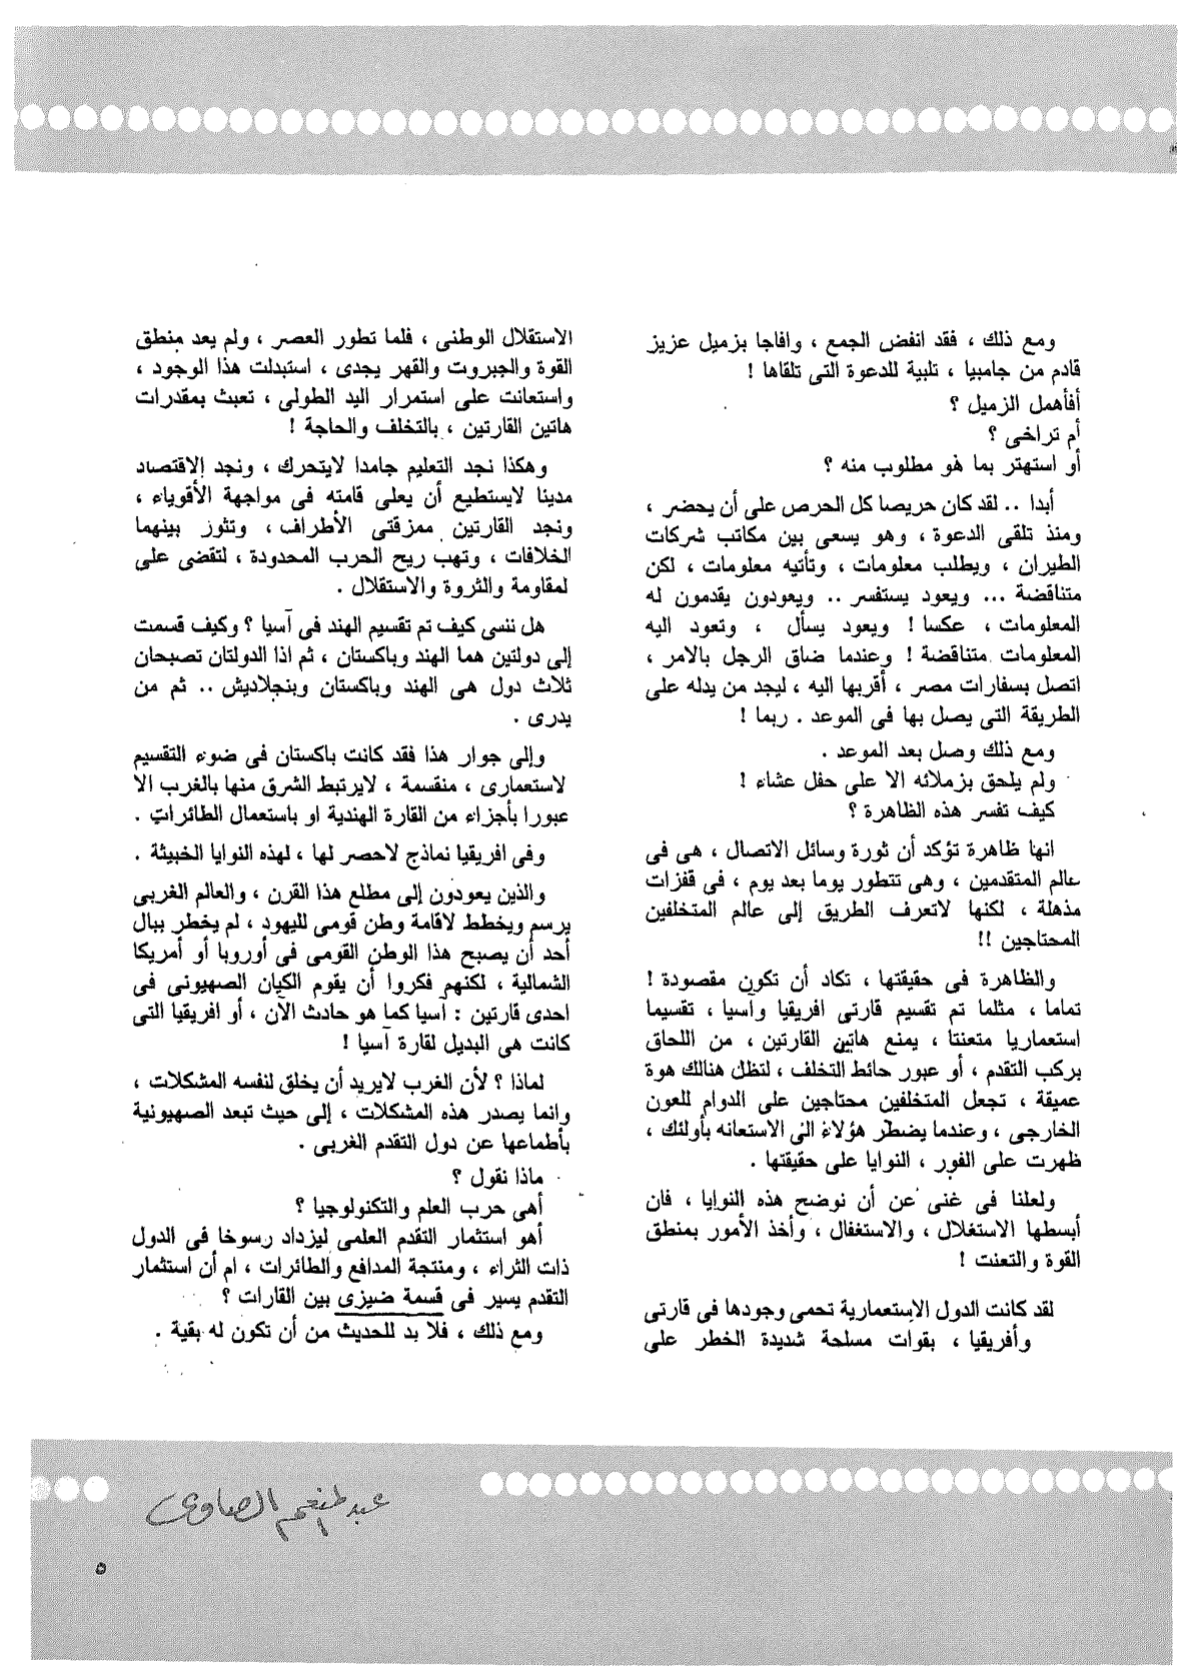 ومع ذلك ، فقد انفض الجمع ، وافاجا بزميل عزيز
قادم من جامبيا ، تلبية للدعوة التى تلقاها !
أفأهمل الزميل ؟
أم تراخى ؟
أو استهتر بما هو مطلوب منه ؟
أبدا .. لقد كان حريصا كل الحرص على أن يحضر ،
ومنذ تلقى الدعوة ، وهو يسعى بين مكاتب شركات
الطيران ، ويطلب معلومات ، وتأتيه معلومات ، لكن
متناقضة ... ويعود يستفسر .. ويعودون يقدمون له
المعلومات ، عكسا ! ويعود يسأل ، وتعود اليه
المعلومات متناقضة ! وعندما ضاق الرجل بالامر ،
اتصل بسفارات مصر ، أقربها اليه ، ليجد من يدله على
الطريقة التى يصل بها فى الموعد . ربما !
ومع ذلك وصل بعد الموعد .
ولم يلحق بزملائه الا على حفل عشاء !
كيف تفسر هذه الظاهرة ؟
انها ظاهرة تؤكد أن ثورة وسائل الاتصال ، هى فى
عالم المتقدمين ، وهى تتطور يوما بعد يوم ، فى قفزات
مذهلة ، لكنها لاتعرف الطريق إلى عالم المتخلفين
المحتاجين !!
والظاهرة فى حقيقتها ، تكاد أن تكون مقصودة !
تماما ، مثلما تم تقسيم قارتى افريقيا وآسيا ، تقسيما
استعماريا متعنتا ، يمنع هاتين القارتين ، من اللحاق
بركب التقدم ، أو عبور حائط التخلف ، لتظل هنالك هوة
عميقة ، تجعل المتخلفين محتاجين على الدوام للعون
الخارجى ، وعندما يضطر هؤلاء الى الاستعانه بأولئك ،
ظهرت على الفور ، النوايا على حقيقتها .
ولعلنا فى غنى عن أن نوضح هذه النوايا ، فان
أبسطها الاستغلال ، والاستغفال ، وأخذ الأمور بمنطق
القوة والتعنت !
لقد كانت الدول الاستعمارية تحمى وجودها فى قارتى
وأفريقيا ، بقوات مسلحة شديدة الخطر على
الاستقلال الوطنى ، فلما تطور العصر ، ولم يعد منطق
القوة والجبروت والقهر يجدى ، استبدلت هذا الوجود ،
واستعانت على استمرار اليد الطولى ، تعبث بمقدرات
هاتين القارتين ، بالتخلف والحاجة !
وهكذا نجد التعليم جامدا لايتحرك ، ونجد الاقتصاد
مدينا لايستطيع أن يعلى قامته فى مواجهة الأقوياء ،
ونجد القارتين ممزقتى الأطراف ، وتثور بينهما
الخلافات ، وتهب ريح الحرب المحدودة ، لتقضى على
لمقاومة والثروة والاستقلال .
هل ننسى كيف تم تقسيم الهند فى آسيا ؟ وكيف قسمت
إلى دولتين هما الهند وباكستان ، ثم اذا الدولتان تصبحان
ثلاث دول هى الهند وباكستان وبنجلاديش .. ثم من
يدرى .
وإلى جوار هذا فقد كانت باكستان فى ضوء التقسيم
لاستعمارى ، منقسمة ، لايرتبط الشرق منها بالغرب الا
عبورا بأجزاء من القارة الهندية او باستعمال الطائرات .
وفى افريقيا نماذج لاحصر لها ، لهذه النوايا الخبيثة .
والذين يعودون إلى مطلع هذا القرن ، والعالم الغربى
يرسم ويخطط لاقامة وطن قومى لليهود ، لم يخطر ببال
أحد أن يصبح هذا الوطن القومى فى أوروبا أو أمريكا
الشمالية ، لكنهم فكروا أن يقوم الكيان الصهيونى فى
احدى قارتين : آسيا كما هو حادث الآن ، أو افريقيا التى
كانت هى البديل لقارة آسيا !
لماذا ؟ لأن الغرب لايريد أن يخلق لنفسه المشكلات ،
وانما يصدر هذه المشكلات ، إلى حيث تبعد الصهيونية
بأطماعها عن دول التقدم الغربى .
ماذا نقول ؟
أهى حرب العلم والتكنولوجيا ؟
أهو استثمار التقدم العلمى ليزداد رسوخا فى الدول
ذات الثراء ، ومنتجة المدافع والطائرات ، ام أن استثمار
التقدم يسير فى قسمة ضيزى بين القارات ؟
ومع ذلك ، فلا بد للحديث من أن تكون له بقية .
عبد المنعم الصاوى
٥